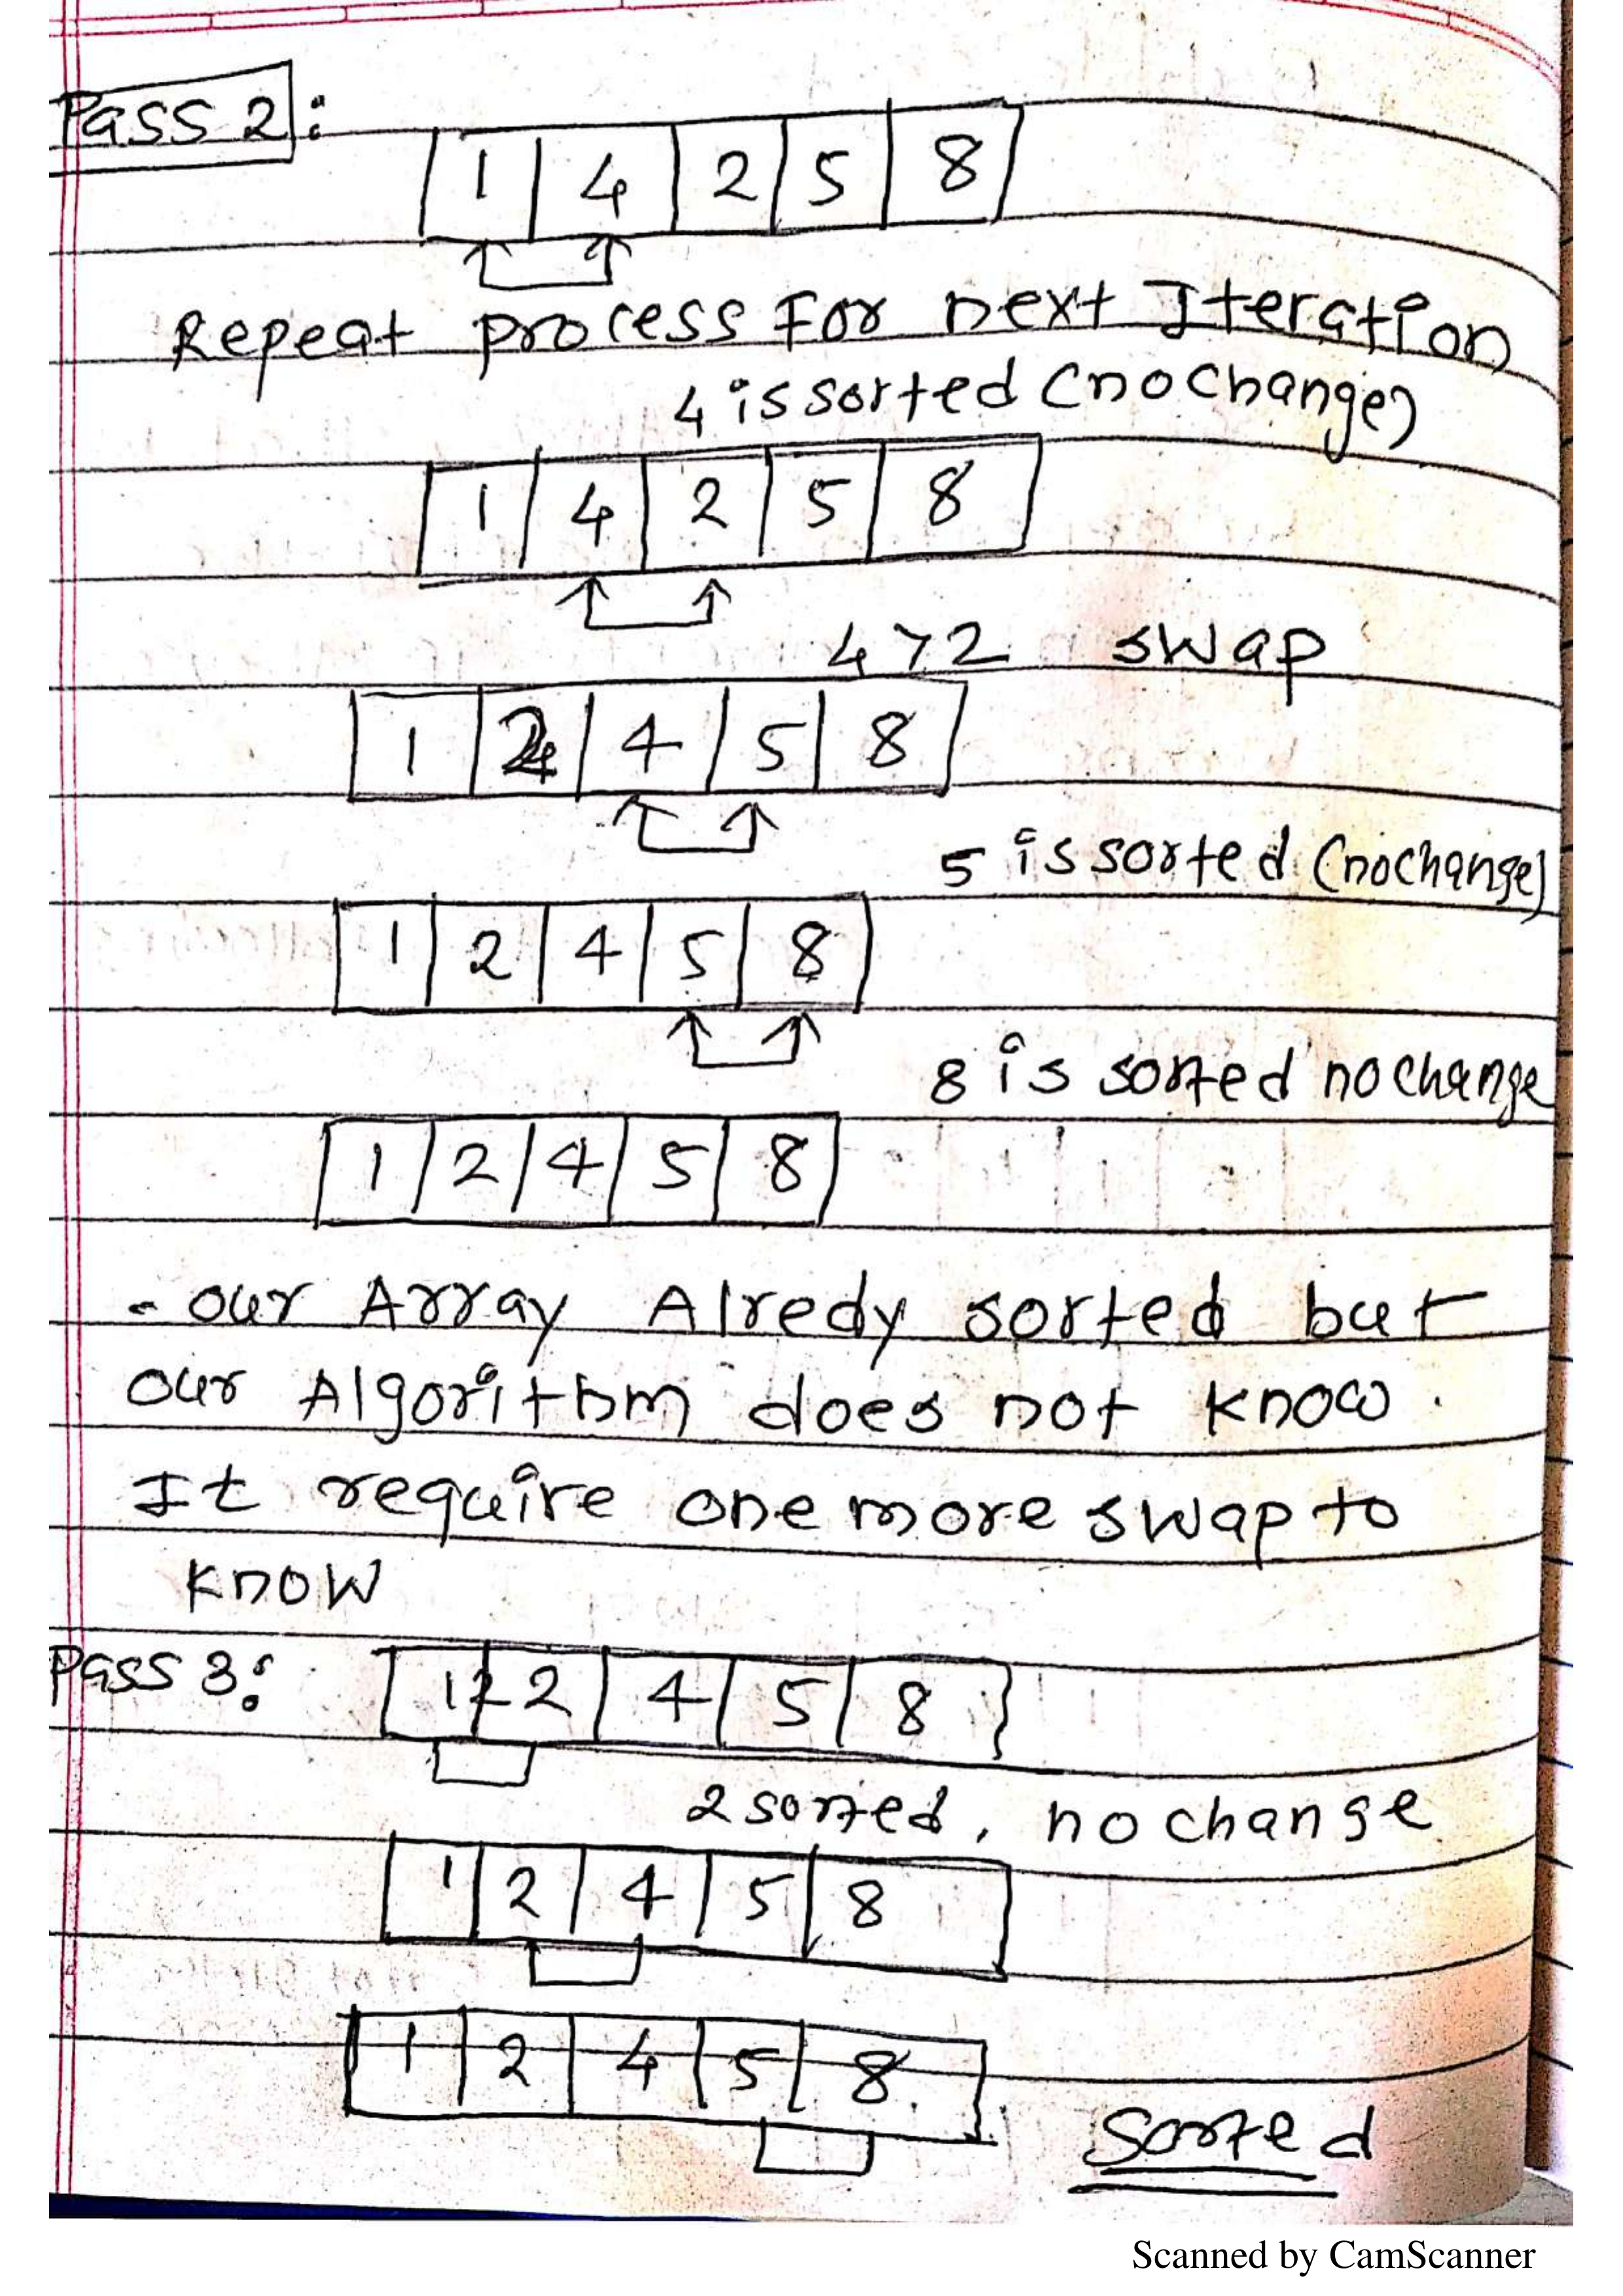 Pass 2:
1 4 2 5 8
Repeat process For next Iteration
4 is sorted (no change)
1 4 2 5 8
4>2 swap
1 2 4 5 8
5 is sorted (no change)
1 2 4 5 8
8 is sorted no change
1 2 4 5 8
- our Array Alredy sorted but
our Algorithm does not know.
It require one more swap to
know
Pass 3: 1 2 4 5 8
2 sorted, no change
1 2 4 5 8
1 2 4 5 8
Sorted
Scanned by CamScanner